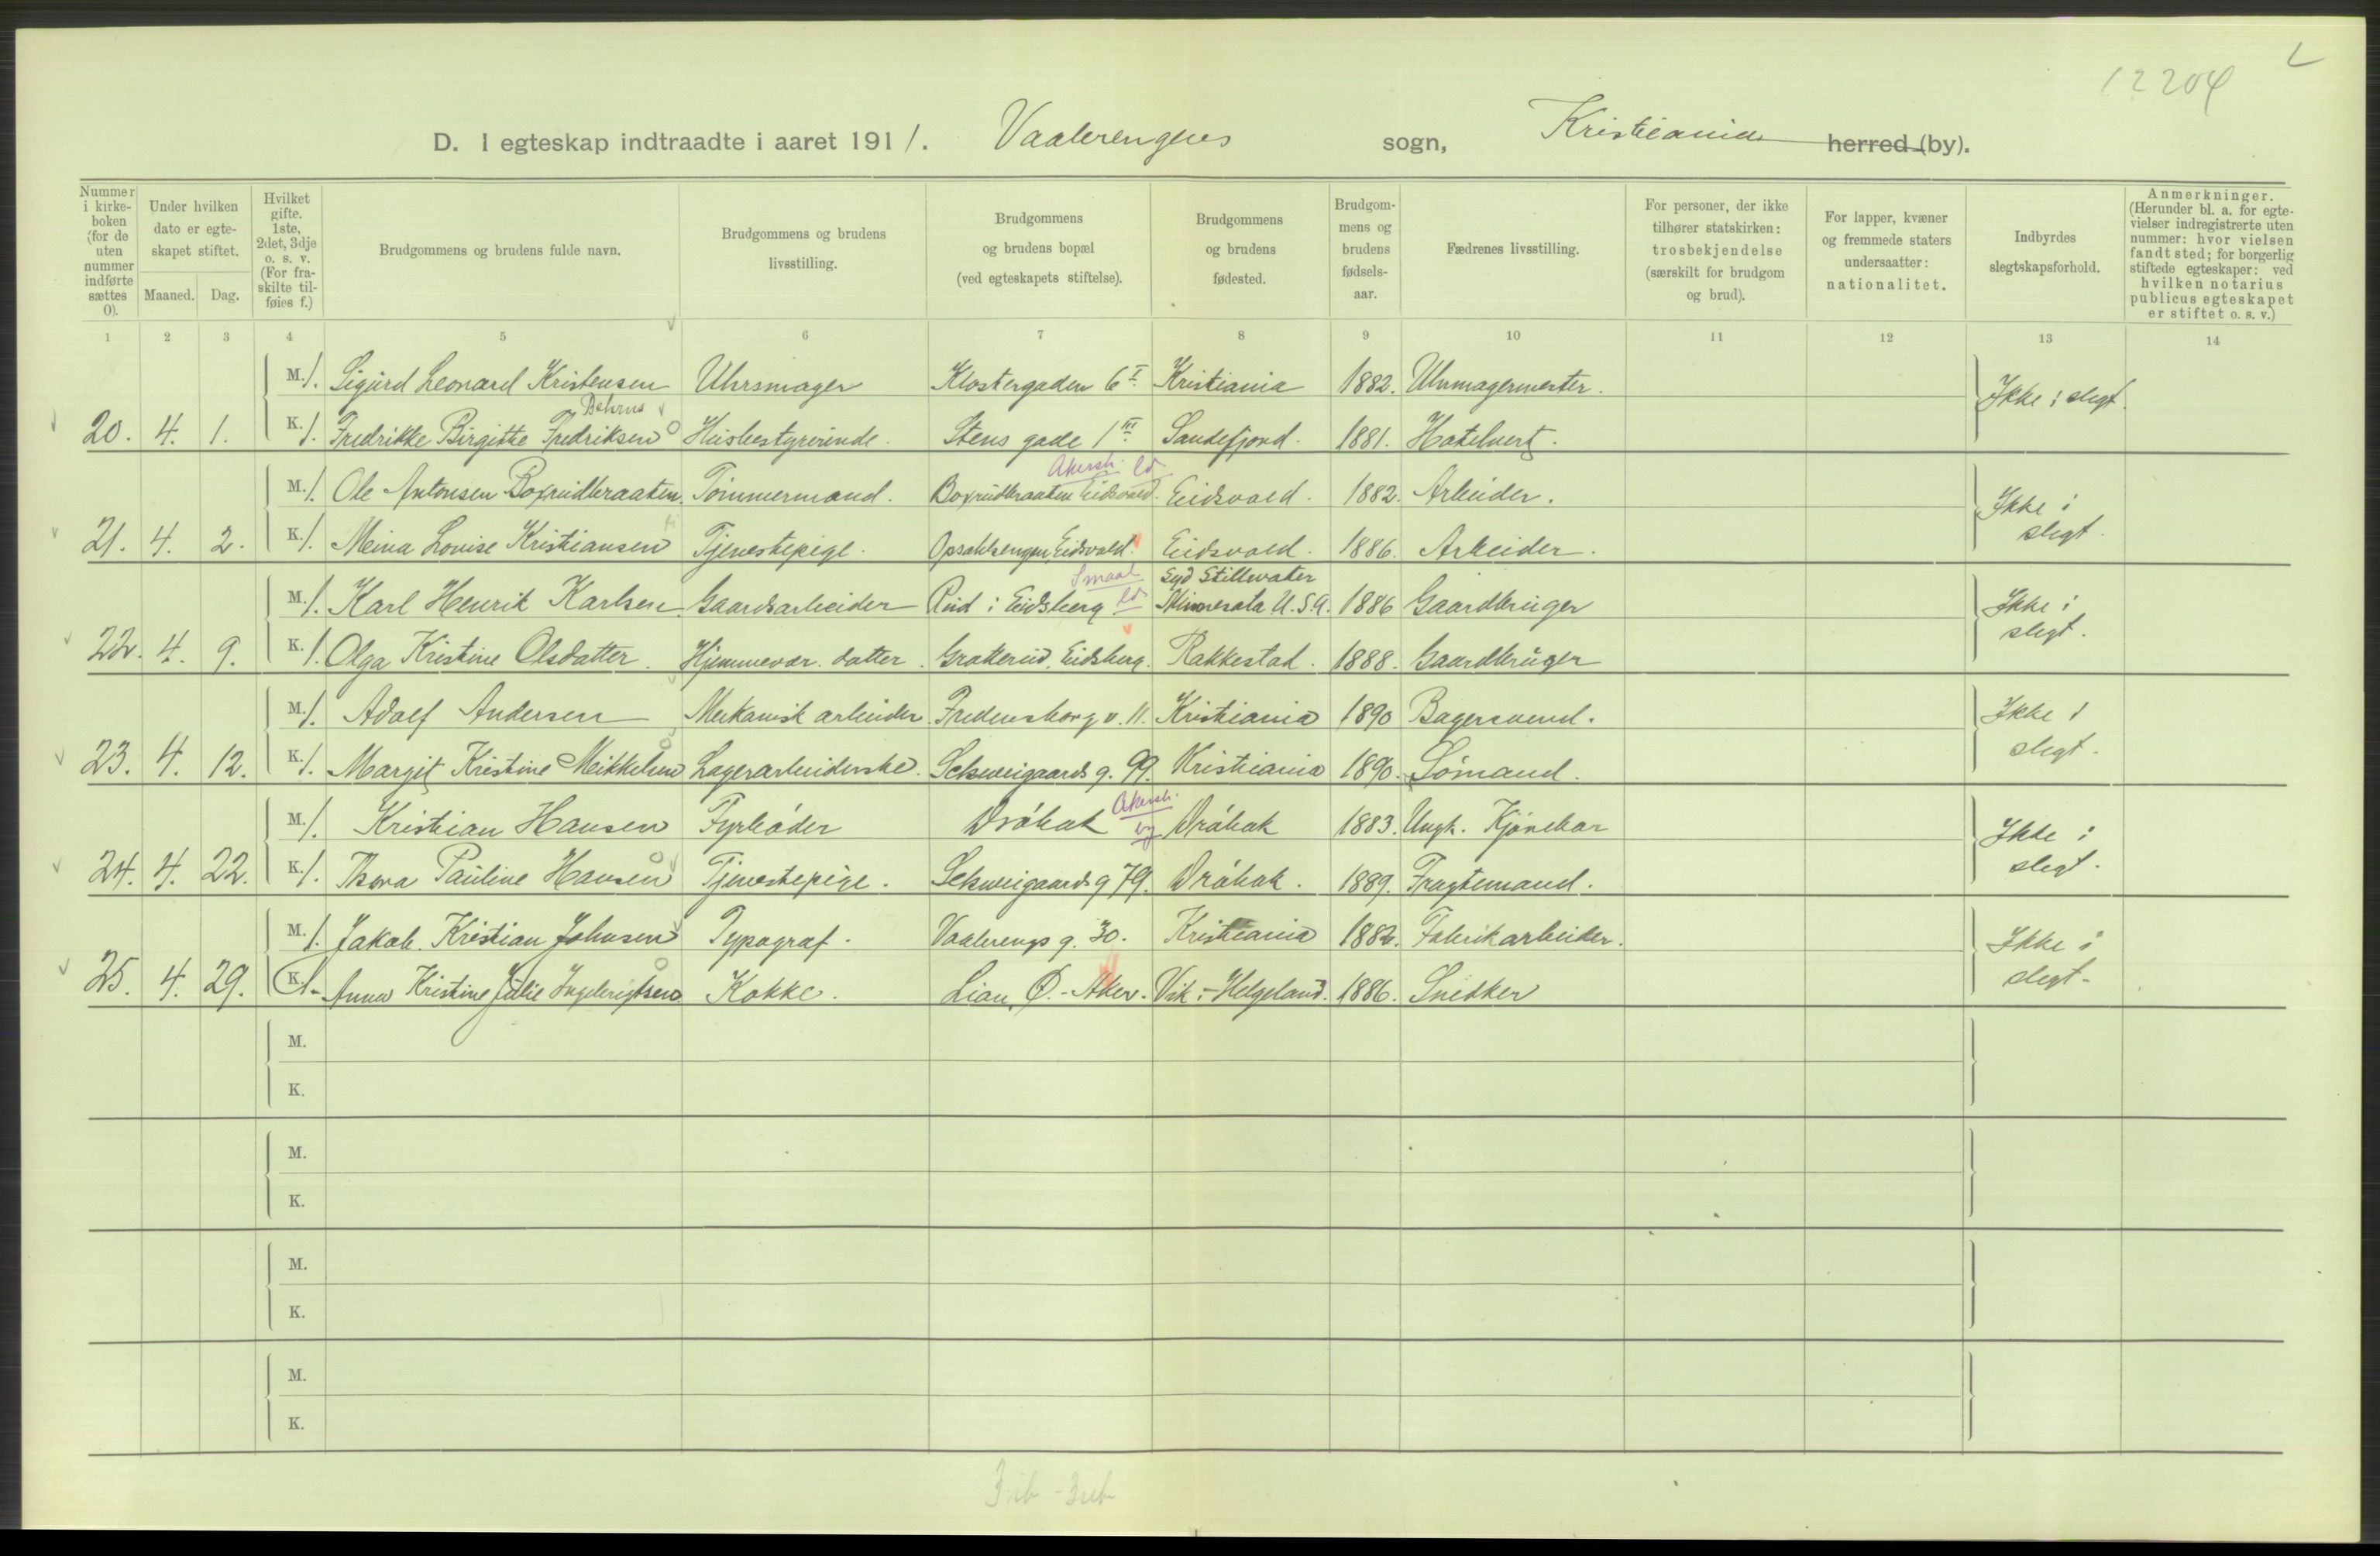 12204
D. I egteskap indtraadte i aaret 1911. Vaalerengens sogn, Kristiania herred (by).
Nummer i kirkeboken (for de uten nummer indførte sættes 0).
Under hvilken dato er egteskapet stiftet.
Maaned. Dag.
Hvilket gifte. 1ste, 2det, 3dje o. s. v. (For fraskilte tilføies f.)
Brudgommens og brudens fulde navn.
Brudgommens og brudens livsstilling.
Brudgommens og brudens bopæl (ved egteskapets stiftelse).
Brudgommens og brudens fødested.
Brudgommens og brudens fødselsaar.
Fædrenes livsstilling.
For personer, der ikke tilhører statskirken: trosbekjendelse (særskilt for brudgom og brud).
For lapper, kvæner og fremmede staters undersaatter: nationalitet.
Indbyrdes slegtskapsforhold.
Anmerkninger. (Herunder bl. a. for egtevielser indregistrerte uten nummer: hvor vielsen fandt sted; for borgerlig stiftede egteskaper: ved hvilken notarius publicus egteskapet er stiftet o. s. v.)
1 2 3 4 5 6 7 8 9 10 11 12 13 14
M. 1. Sigurd Leonard Kristensen Uhrsmager Klostergaden 6 I Kristiania 1882. Uhrmagermester. Ikke i slegt.
Behrns
20. 4. 1. K. 1. Fredrikke Birgitte Fredriksen Husbestyrerinde. Stens gade 1 III Sandefjord. 1881. Hotelvert.
Akersh. ld
M. 1. Ole Antonsen Boxrudbraaten. Tømmermand. Boxrudbraaten Eidsvold. Eidsvold. 1882. Arbeider. Ikke i
21. 4. 2. K. 1. Meina Lovise Kristiansen Tjenestepige. Opsahlsengen, Eidsvold. Eidsvold. 1886. Arbeider. slegt.
Smaal. ld Syd Stillwater
M. 1. Karl Henrik Karlsen Gaardsarbeider Rud i Eidsberg Minnesota U.S.A. 1886 Gaardbruger Ikke i
22. 4. 9. K. 1. Olga Kristine Olsdatter. Hjemmevær. datter. Grotterud, Eidsberg. Rakkestad. 1888. Gaardbruger slegt.
M. 1. Adolf Andersen Mekanisk arbeider. Fredensborg v. 11. Kristiania 1890 Bagersvend. Ikke i
23. 4. 12. K. 1. Margit Kristine Mikkelsen Lagerarbeiderske. Schweigaards g. 99. Kristiania 1890. Sømand. slegt.
Akersh. by
M. 1. Kristian Hansen Fyrbøder Drøbak Drøbak 1883. Ungk. Ikke i
24. 4. 22. K. 1. Thora Pauline Hansen Tjenestepige. Schweigaards g 79. Drøbak. 1889. Fragtemand. slegt.
M. 1. Jakob Kristian Johnsen Typograf. Vaalerengs g. 30. Kristiania 1882. Fabrikarbeider. Ikke i
25. 4. 29. K. 1. Anna Kristine Julie Ingebrigtsen Kokke. Lian, Ø.-Aker. Vik i Helgeland. 1886. Snedker slegt.
M.
K.
M.
K.
M.
K.
M.
K.